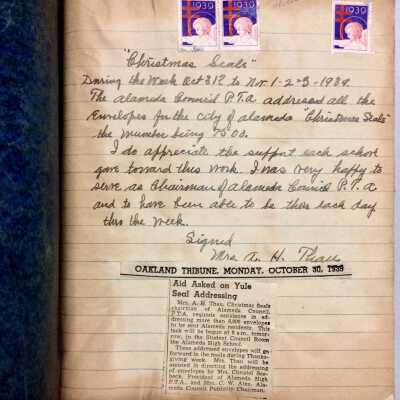 1939 1939 1939
"Christmas Seals"
During the Week Oct 31 2 to Nov. 1-2-3-1939.
The Alameda Council P.T.A. addressed all the
Envelopes for the city of Alameda "Christmas Seals"
the number being 7500.
I do appreciate the support each school
gave toward this work. I was very happy to
serve as Chairman of Alameda Council P.T.A
and to have been able to be there each day
thru the week.
Signed
Mrs A. H. Thau
OAKLAND TRIBUNE, MONDAY, OCTOBER 30, 1939
Aid Asked on Yule
Seal Addressing
Mrs. A. H. Thau, Christmas Seals
chairman of Alameda Council,
P.T.A. requests assistance in ad-
dressing more than 8,000 envelopes
to be sent Alameda residents. This
task will be begun at 9 a.m. tomor-
row, in the Student Council Room
the Alameda High School.
These addressed envelopes will go
forward in the mails during Thanks-
giving week. Mrs. Thau will be
assisted in directing the addressing
of envelopes by Mrs. Christel
back, President of Alameda High
P.T.A., and Mrs. C. W. Ala-
meda Council Publicity Chairman.